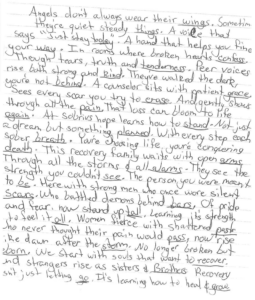 Angels don't always wear their wings. Sometim
they're quiet steady things. A voice that
says Just stay today. A hand that helps you fine
your way. In rooms where broken hearts confess
Through tears, truth and tenderness. Peer voices
rise both strong and kind. They've walked the dark
you're not behind. A counselor sits with patient grace
Sees every scar you try to erase. And gently shows
through all the pain, That loss can bloom to life
again. At Sobrius hope learns to stand. Not just
a dream but something planned. With every step each
sober breath. You're chasing life, you're conquering
death. This recovery family waits with open arms
Through all the storms & all alarms. They see the
strength you couldnt see. The person you were meant
to be. Here with strong men who once wore silent
Scars. Who battled demons behind bars. Of pride
and fear. now stand up tall. Learning its strength
to feel it all. Women fierce with shattered past
who never thought their pain would pass, now rise
like dawn after the storm. No longer broken but
born. We start with souls that want to recover.
and strangers rise as sisters & Brothers Recovery
isnt just letting go. It's learning how to heal & grow